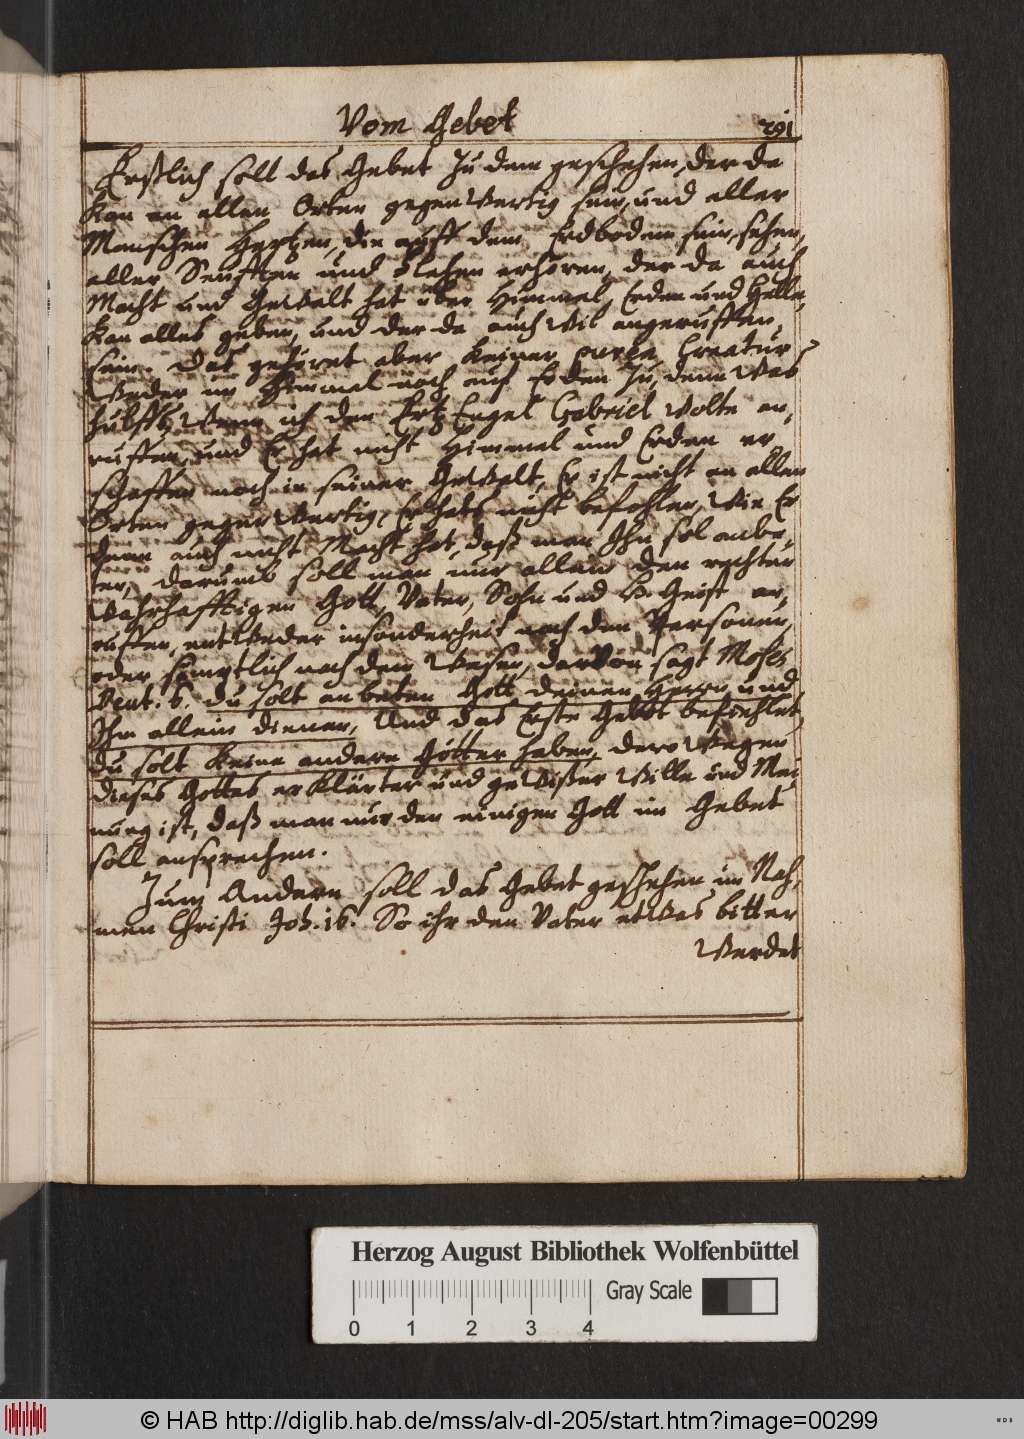 Vom Gebet
291
Erstlich soll das Gebet Zu dem geschehen, der da
Kan an allen Orten gegenwertig sein, und aller
Menschen Hertzen, die auff dem Erdbodem sein, sehen,
aller Seufften und flehen erhören, der da auch
Macht und Gewalt hat über Himmel, Erden und Helle,
Kan alles geben, und der da auch wil angeruffen
sein. Das gehöret aber keiner Creatur
weder im Himmel noch auf Erden Zu, denn was
hülffts wenn ich den Ertz Engel Gabriel wolte an,
ruffen, und Er hat nicht Himmel und Erden er,
schaffen noch in seiner Gewalt, Er ist nicht an allen
Orten gegenwertig, Er hats nicht befohlen, wie Er
denn auch nicht Macht hat, daß man Ihn sol anbe,
ten, darumb soll man nur allein den rechten
wahrhafftigen Gott, Vater, Sohn und H. Geist an,
ruffen, entweder insonderheit nach den Personen,
oder semptlich nach dem Wesen, darvon sagt Moses
Deut. 6. du solt anbeten Gott deinen Herrn und
Ihm allein dienen, Und das Erste Gebot befiehlet,
du solt Keine andere Götter haben, derowegen
dieses Gottes erklärter und gewißer Wille und Mei
nung ist, daß man nur den einigen Gott im Gebet
soll ansprechen.
Zum Andern soll das Gebet geschehen im Nah,
men Christi Joh. 16. So ihr den Vater etwas bitten
werdet
Herzog August Bibliothek Wolfenbüttel
Gray Scale
0 1 2 3 4
© HAB http://diglib.hab.de/mss/alv-dl-205/start.htm?image=00299